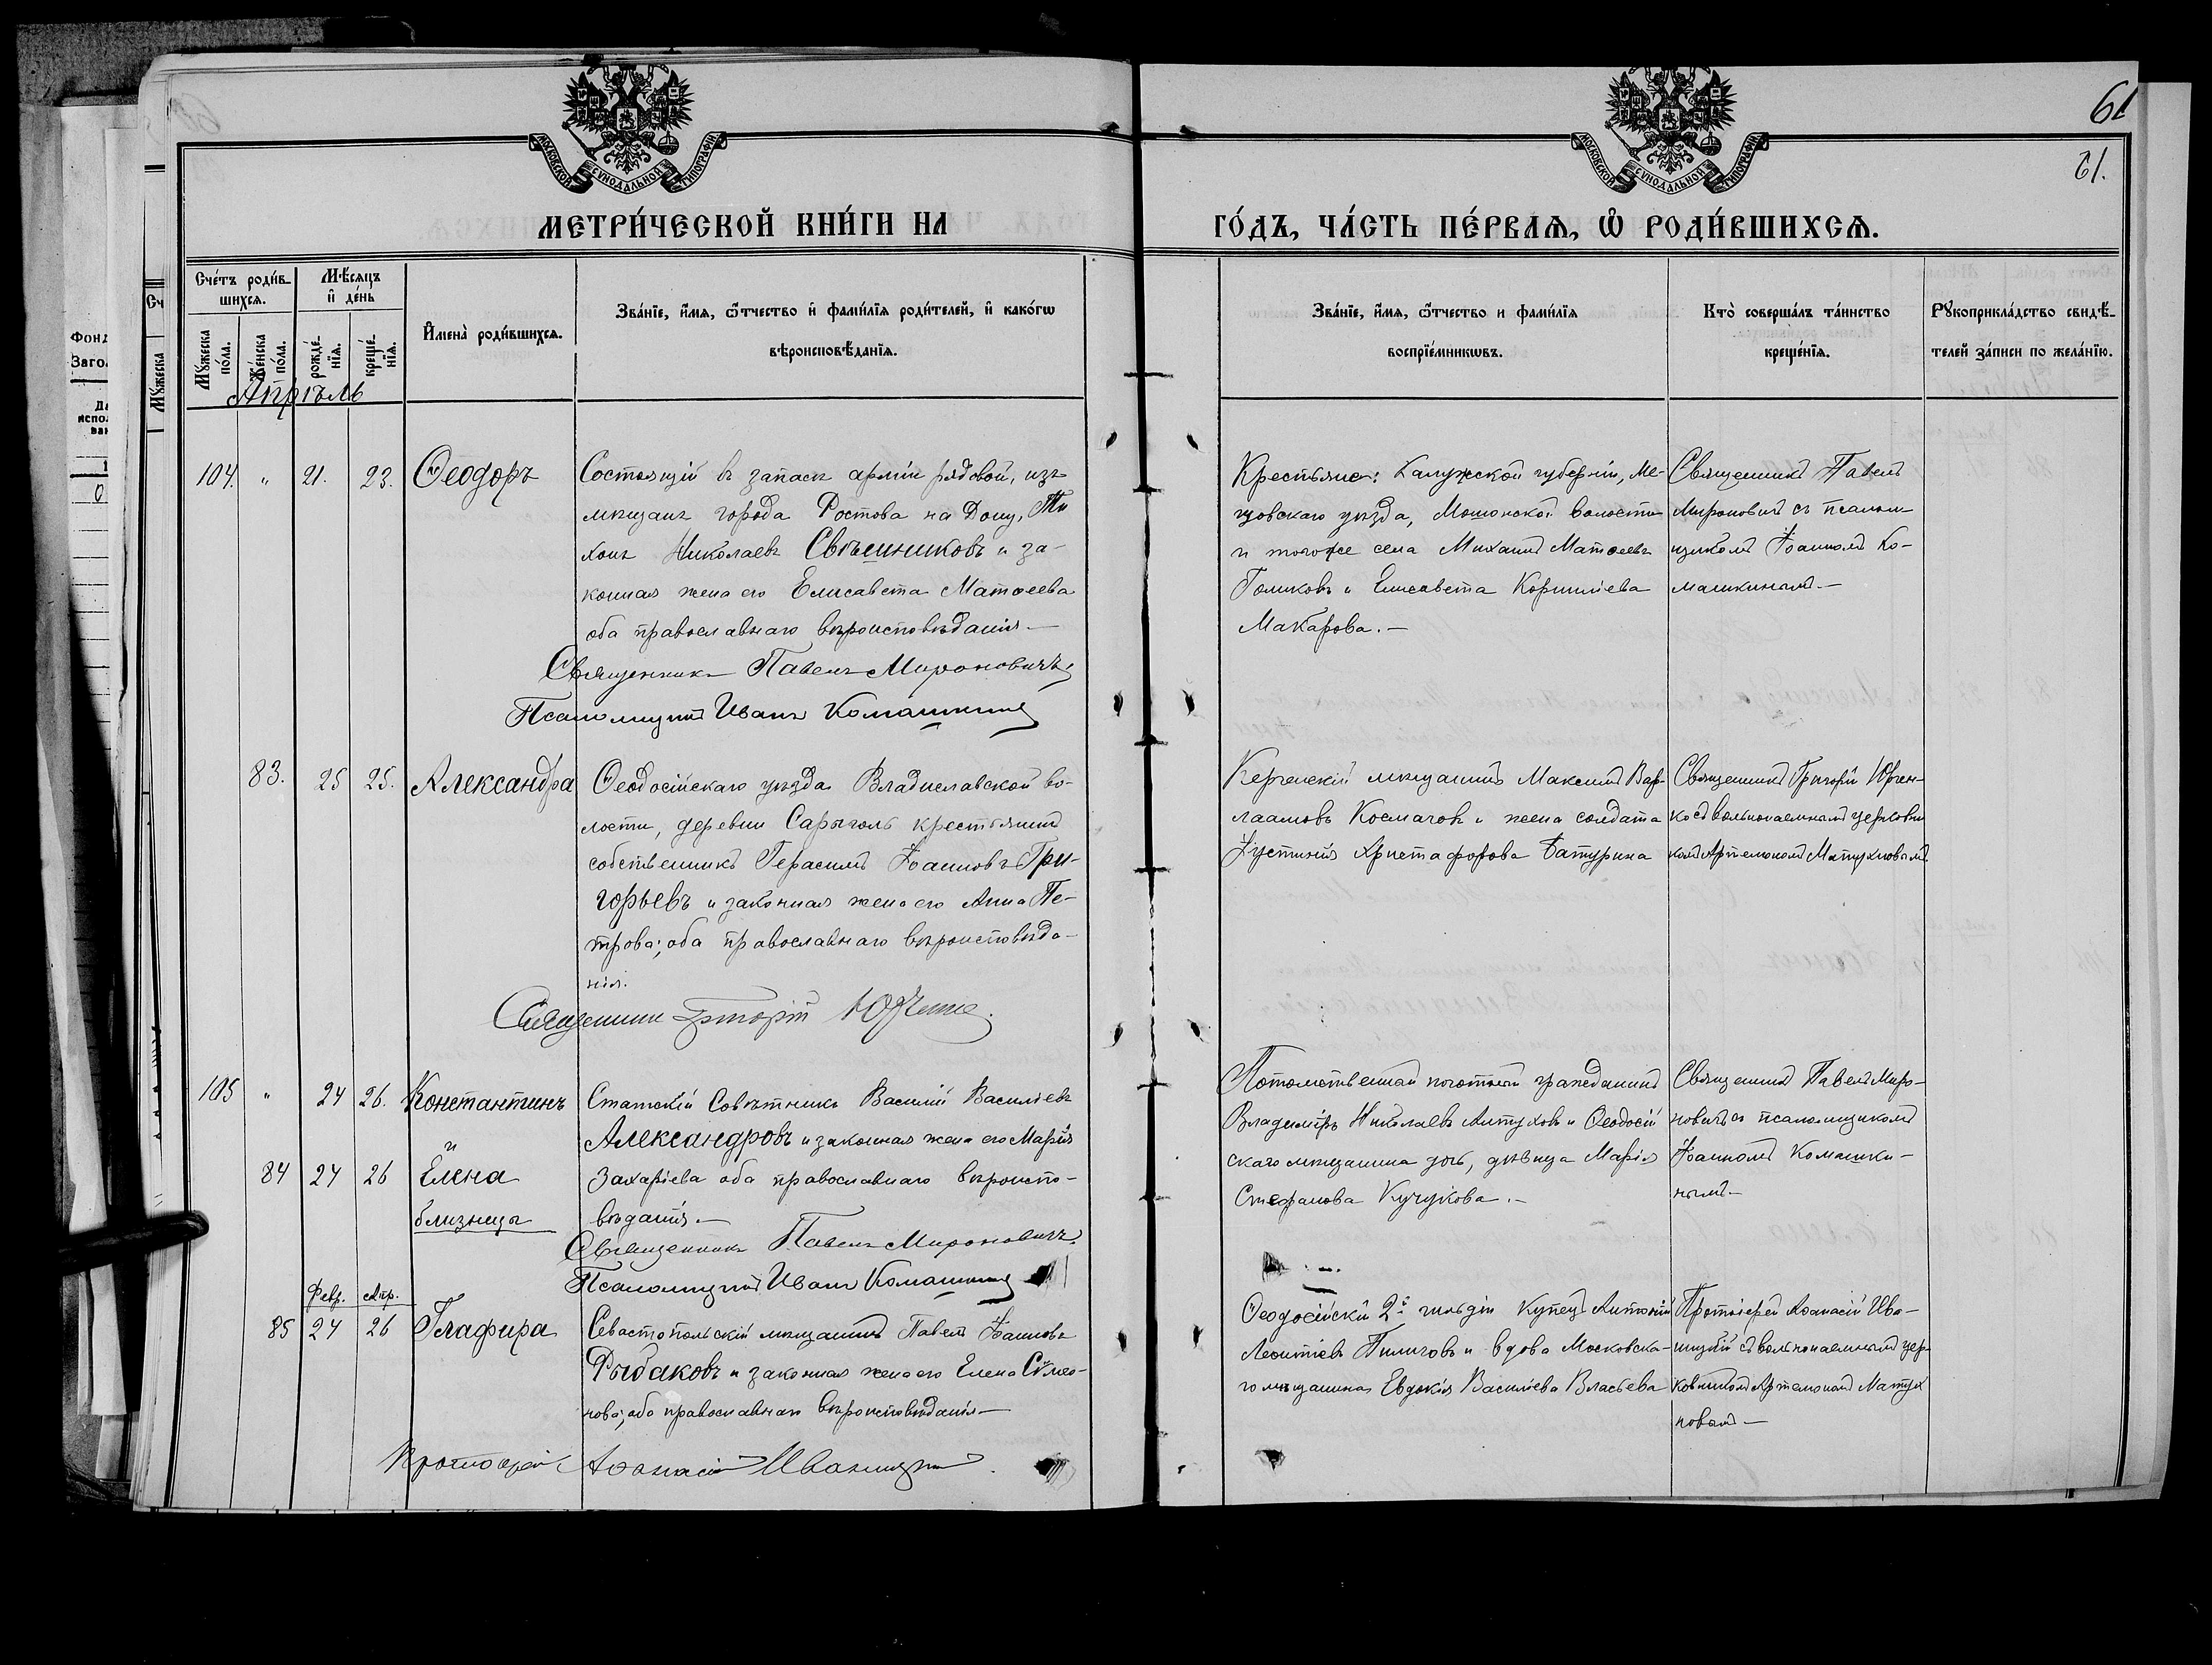 61
61.
МОСКОВСКОЙ СѴНОДАЛЬНОЙ ТИПОГРАФІИ
МОСКОВСКОЙ СѴНОДАЛЬНОЙ ТИПОГРАФІИ
МЕТРИ́ЧЕСКОЙ КНИ́ГИ НА
ГО́ДЪ, ЧА́СТЬ ПЕ́РВАѦ, Ѿ РОДИ́ВШИХСѦ.
Сче́тъ роди́в-
шихсѧ.
Мꙋжеска по́ла.
Же́нска по́ла.
Мѣ́сѧцъ
и҆ де́нь
рожде́-
нїѧ.
креще́-
нїѧ.
И҆мена̀ роди́вшихсѧ.
Зва́нїе, и҆́мѧ, ѻ҆́тчество и҆ фами́лїѧ роди́телей, и҆ како́гѡ
вѣроисповѣ́данїѧ.
Зва́нїе, и҆́мѧ, ѻ҆́тчество и фами́лїѧ
воспрїе́мникѡвъ.
Кто̀ соверша́лъ та́инство
креще́нїѧ.
Рꙋкоприкла́дство свидѣ́-
телей за́писи по жела́нїю.
Апрѣль
104. " 21. 23. Ѳеодоръ
Состоящій въ запасѣ арміи рядовой, изъ
мѣщанъ города Ростова на Дону, Ти
хонъ Николаевъ Свѣшниковъ и за-
конная жена его Елисавета Матѳеева
оба православнаго вѣроисповѣданія.—
Священникъ Павелъ Мироновичъ
Псаломщикъ Иванъ Комашкинъ
Крестьяне: Калужской губерніи, Ме-
щовскаго уѣзда, Мошонской волости
и тогоже села Михаилъ Матѳеевъ
Голиковъ и Елисавета Корниліева
Макарова.—
Священникъ Павелъ
Мироновичъ съ псалом
щикомъ Іоанномъ Ко-
машкинымъ.—
83. 25 25. Александра
Ѳеодосійскаго уѣзда Владиславской во-
лости, деревни Сарыголь крестьянинъ
собственникъ Герасимъ Іоанновъ Гри-
горьевъ и законная жена его Анна Пе-
трова; оба православнаго вѣроисповѣда-
нія.
Священникъ Григорій Юрченко.
Керченскій мѣщанинъ Максимъ Вар-
лаамовъ Космачовъ и жена солдата
Іустинія Христофорова Батурина
Священникъ Григорій Юрчен-
ко съ вольнонаемнымъ церковни
комъ Артемономъ Матухновымъ
105 " 24 26. Константинъ
и
84 24 26 Елена
близнецы
Статскій Совѣтникъ Василій Василіевъ
Александровъ и законная жена его Марія
Захаріева оба православнаго вѣроиспо-
вѣданія.—
Священникъ Павелъ Мироновичъ.
Псаломщикъ Иванъ Комашкинъ
Потомственный почотный гражданинъ
Владиміръ Николаевъ Алтуховъ и Ѳеодосій
скаго мѣщанина дочь, дѣвица Марія
Стефанова Кучукова.—
Священникъ Павелъ Миро-
новичъ съ псаломщикомъ
Іоанномъ Комашки-
нымъ—
Февр. Апр.
85 24 26 Глафира
Севастопольскій мѣщанинъ Павелъ Іоанновъ
Рыбаковъ и законная жена его Елена Симео-
нова; оба православнаго вѣроисповѣданія—
Протоіерей Аѳанасій Иваницкій.
Ѳеодосійскій 2й гильдіи купецъ Антоній
Леонтіевъ Пиличовъ и вдова Московска-
го мѣщанина Евдокія Василіева Власьева
Протоіерей Аѳанасій Ива-
ницкій съ вольнонаемнымъ цер
ковникомъ Артемономъ Матух
новымъ—
Фонд